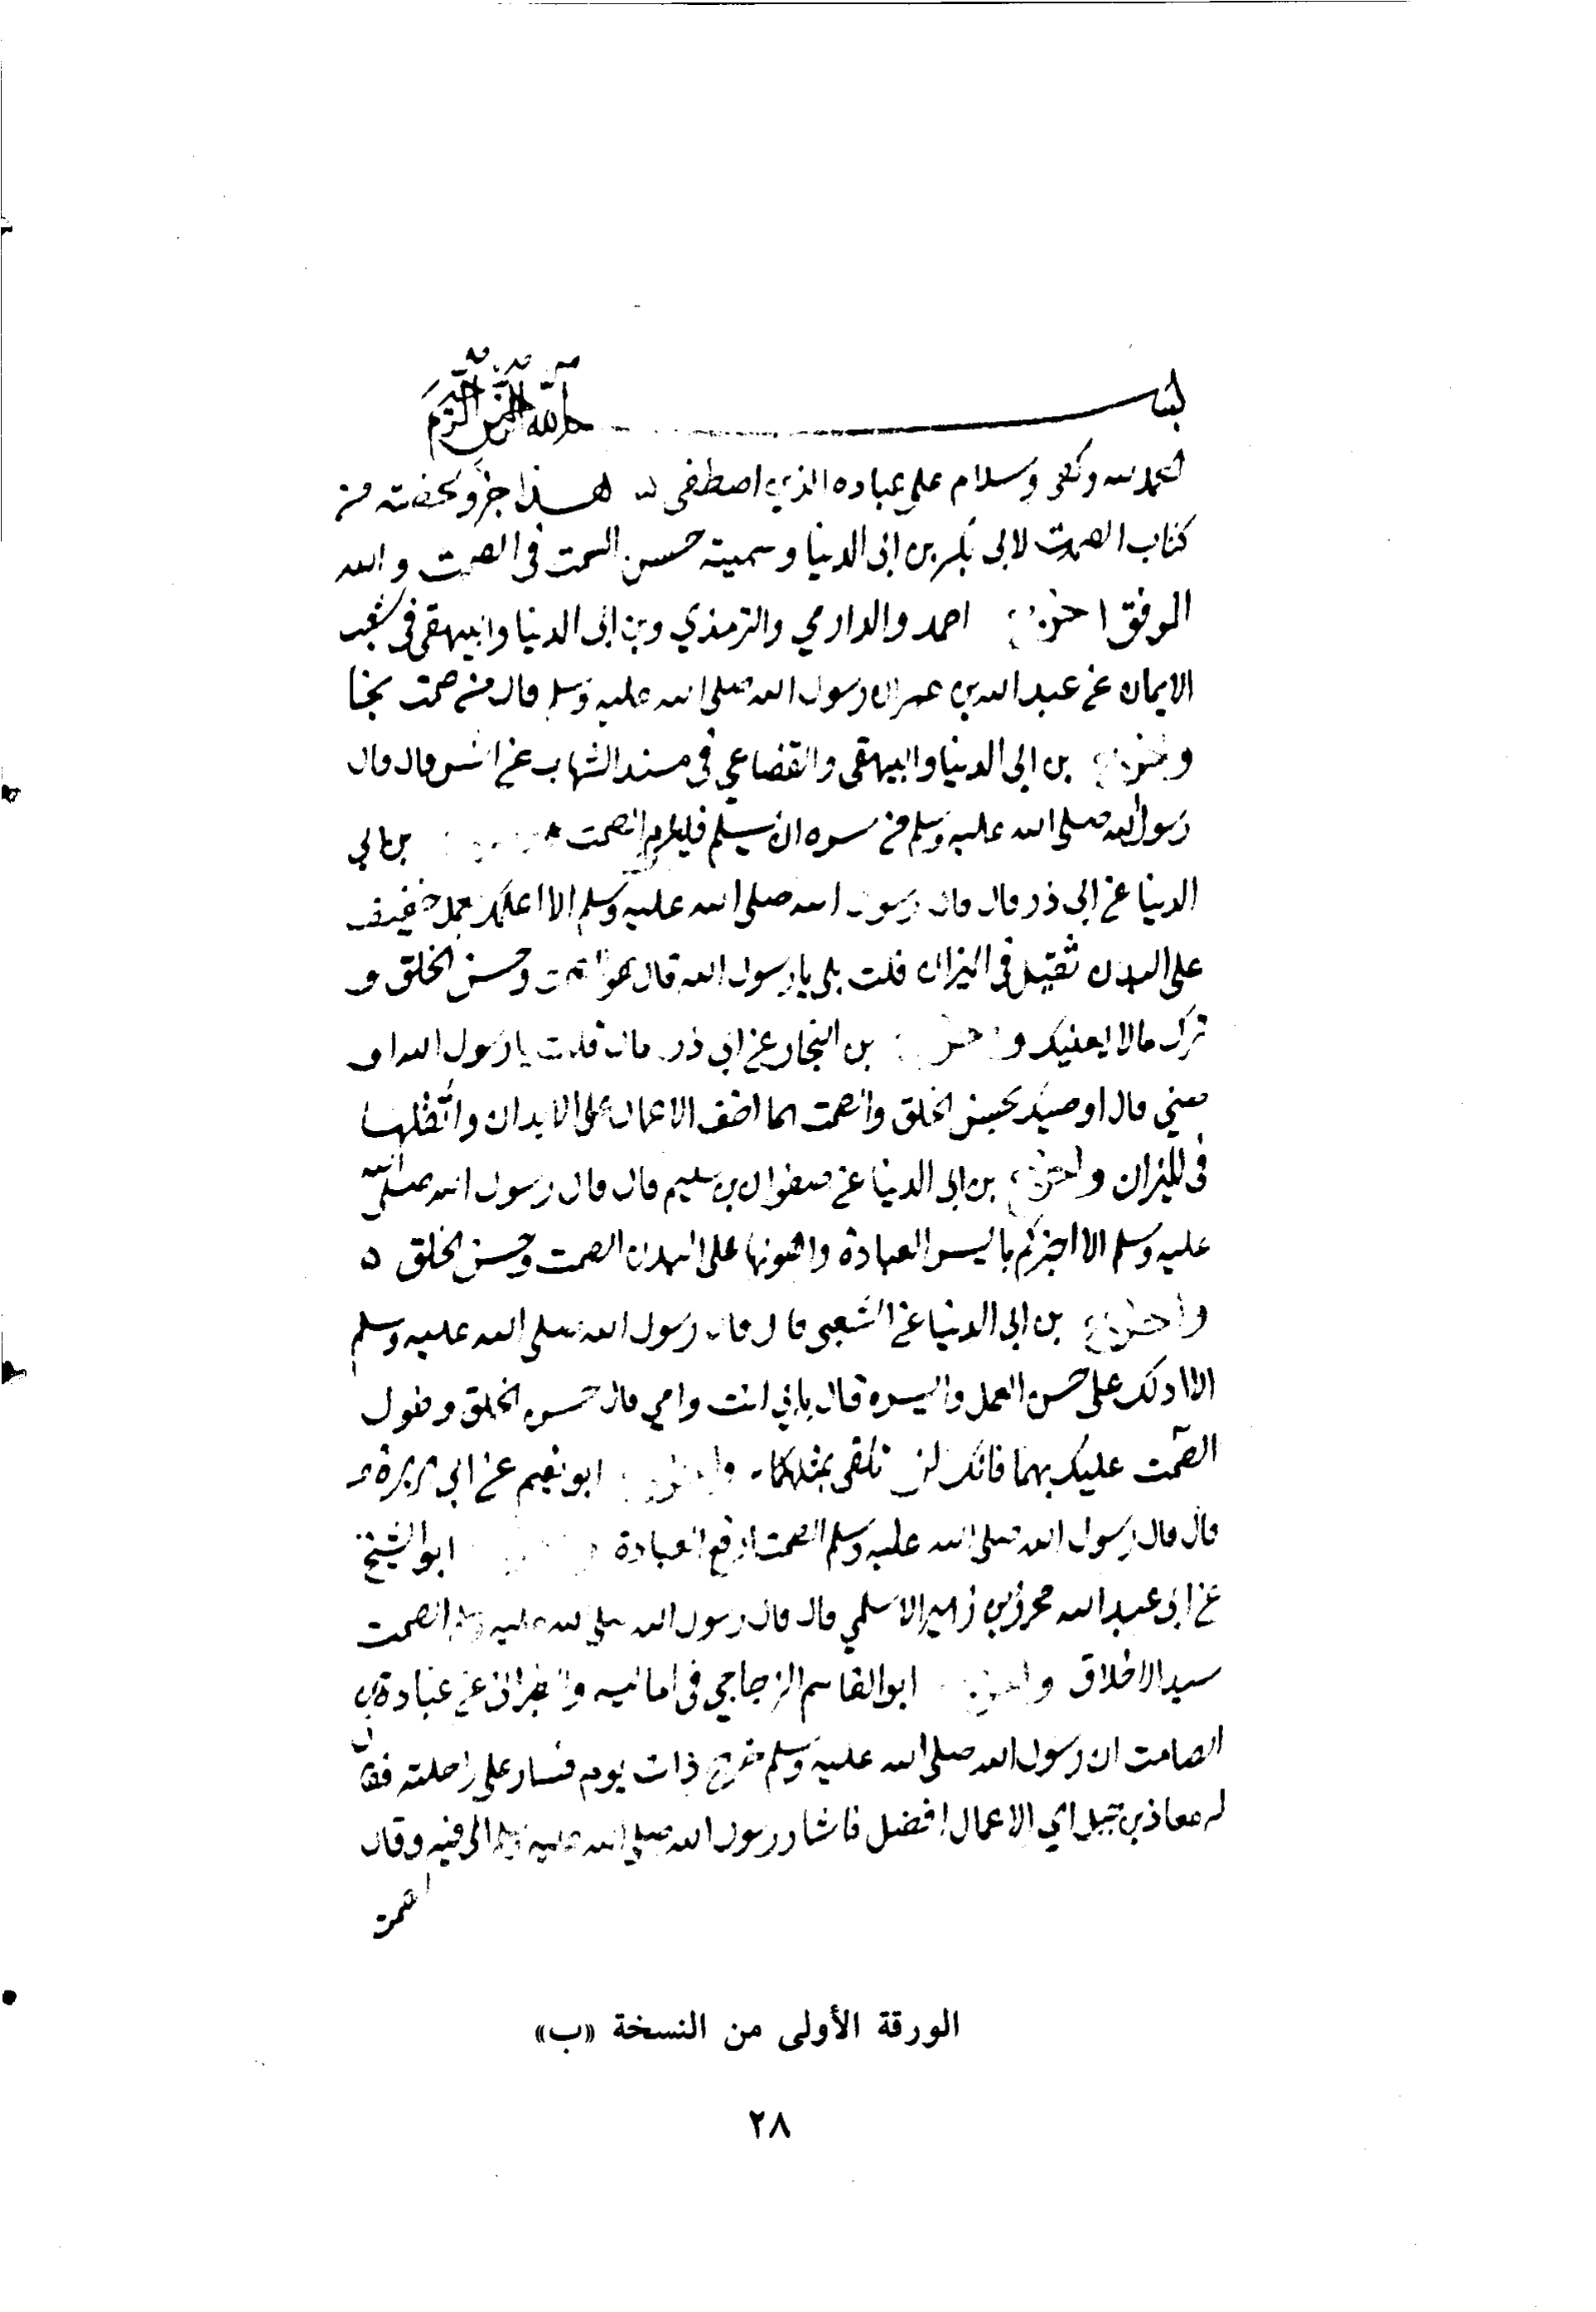 بسم الله الرحمن الرحيم
الحمد لله وكفى وسلام على عباده الذين اصطفى هذا جزو لخصته من
كتاب الصمت لابي بكر بن ابي الدنيا وسميته حسن السمت في الصمت والله
الموفق اخرج احمد والدارمي والترمذي وبن ابي الدنيا والبيهقي في شعب
الايمان عن عبد الله بن عمر ان رسول الله صلى الله عليه وسلم قال من صمت نجا
واخرج بن ابي الدنيا والبيهقي والقضاعي في مسند الشهاب عن انس قال قال
رسول الله صلى الله عليه وسلم من سره ان يسلم فليلزم الصمت بن ابي
الدنيا عن ابي ذر قال قال رسول الله صلى الله عليه وسلم الا اعلمك بعمل خفيف
على البدن ثقيل في الميزان قلت بلى يا رسول الله قال هو الصمت وحسن الخلق و
ترك ما لا يعنيك واخرج بن النجار عن ابي ذر قال قلت يا رسول الله او
صيني قال اوصيك بحسن الخلق والصمت هما اخف الاعمال على الابدان واثقلها
في الميزان واخرج بن ابي الدنيا عن صفوان بن سليم قال قال رسول الله صلى الله
عليه وسلم الا اخبركم بايسر العبادة واهونها على البدن الصمت وحسن الخلق ه
واخرج بن ابي الدنيا عن الشعبي قال قال رسول الله صلى الله عليه وسلم
الا ادلك على حسن العمل وايسره قال بابي انت وامي قال حسن الخلق وطول
الصمت عليك بهما فانك لن تلقى بمثلهما واخرج ابو نعيم عن ابي هريرة
قال قال رسول الله صلى الله عليه وسلم الصمت ارفع العبادة ابو الشيخ
عن ابي عبد الله محرز بن زهير الاسلمي قال قال رسول الله صلى الله عليه وسلم الصمت
سيد الاخلاق واخرج ابو القاسم الزجاجي في اماليه والطبراني عن عبادة بن
الصامت ان رسول الله صلى الله عليه وسلم خرج ذات يوم فسار على راحلته فقال
له معاذ بن جبل اي الاعمال افضل فاشار رسول الله صلى الله عليه وسلم الى فيه وقال
الصمت
الورقة الأولى من النسخة «ب»
٢٨